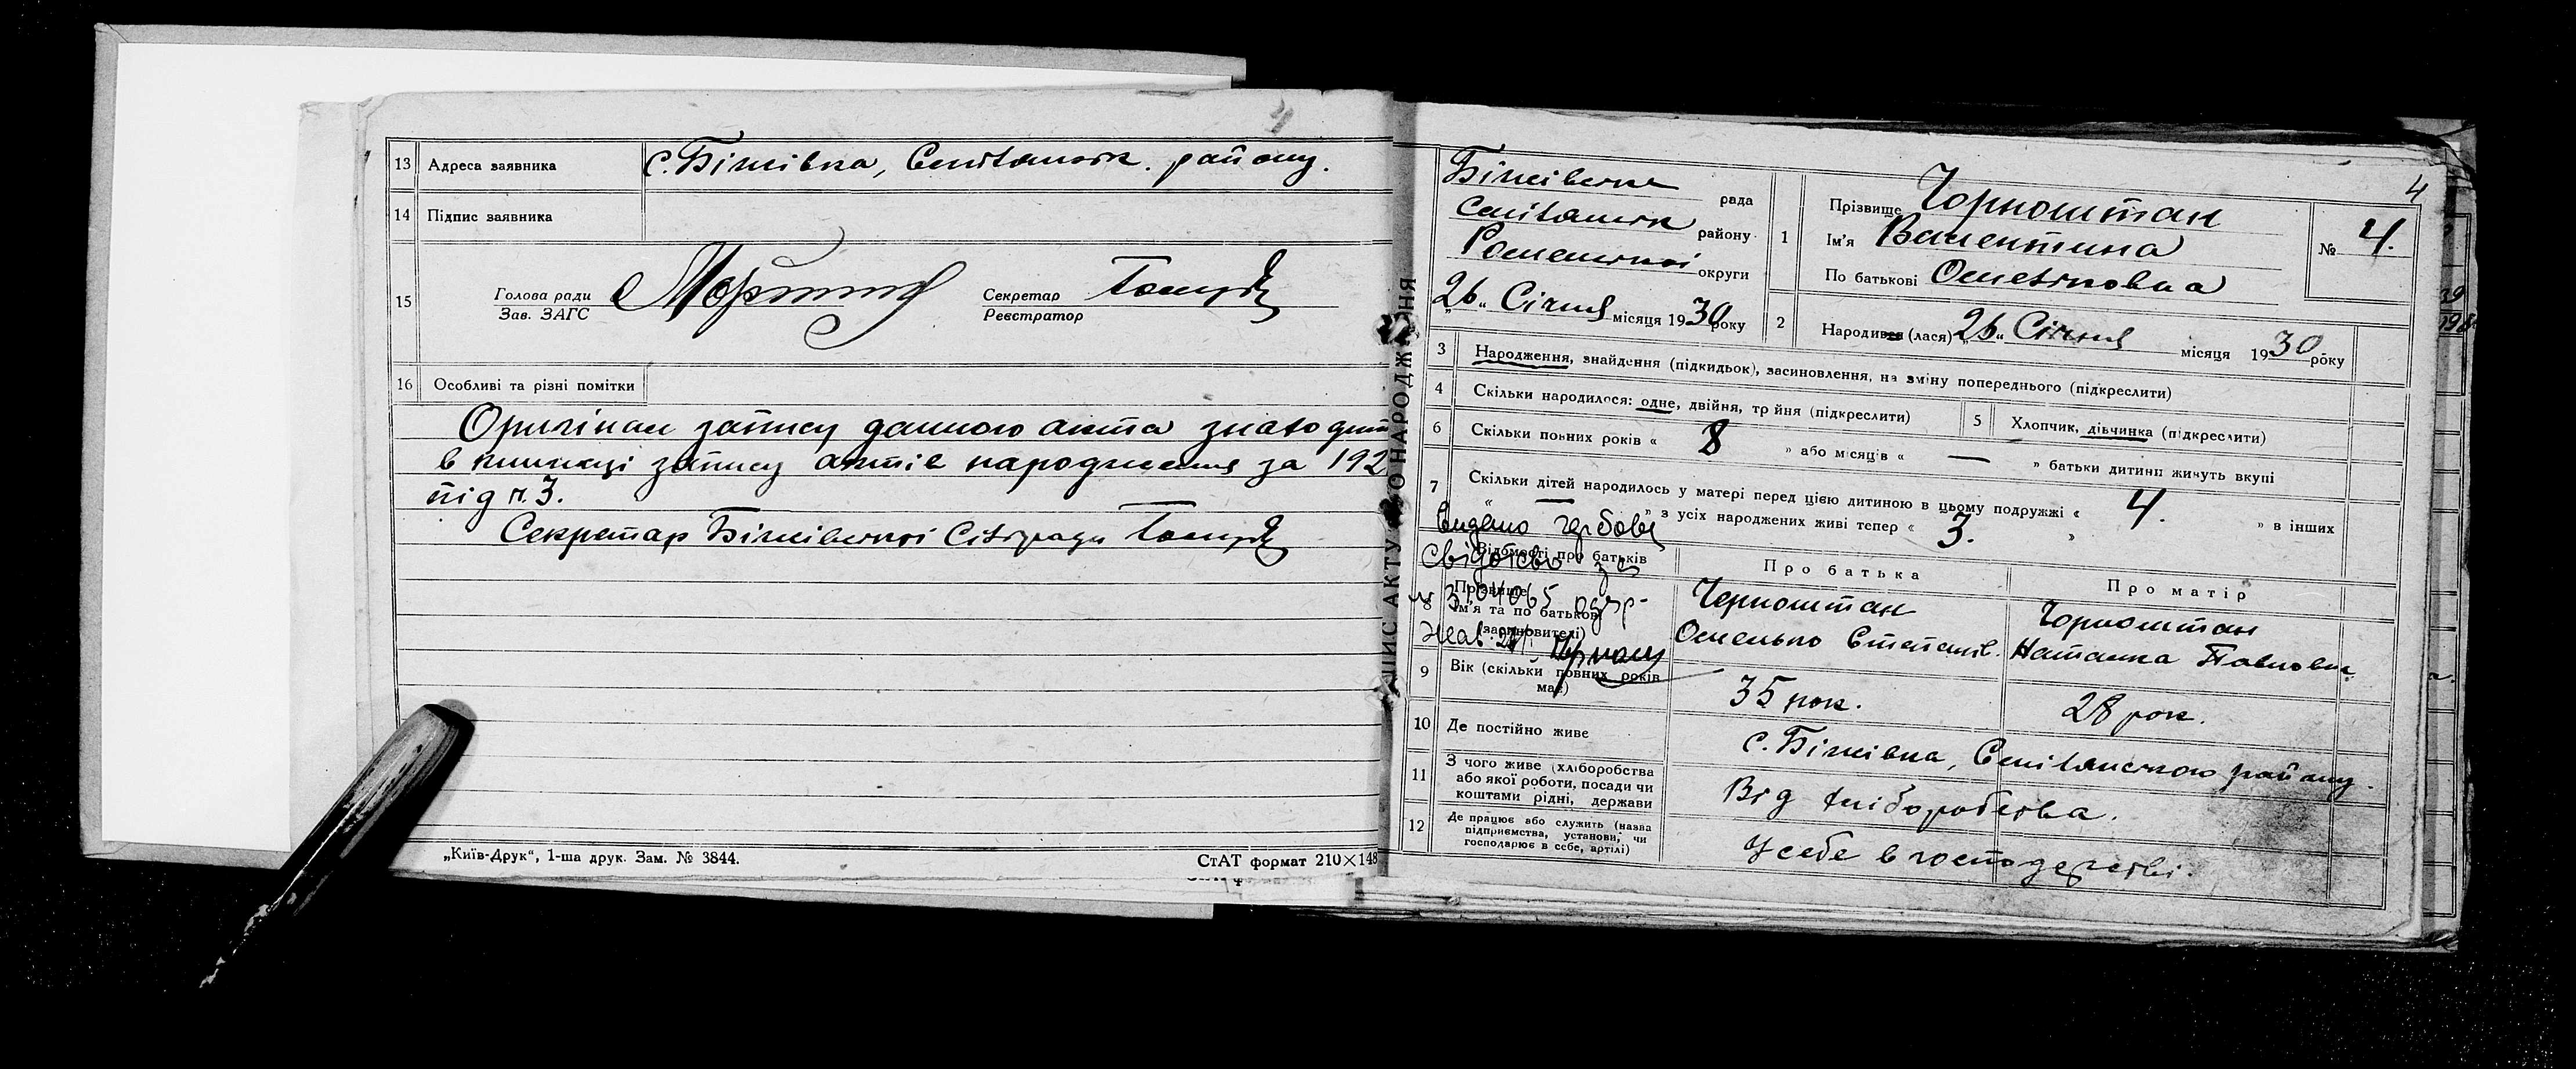 4
13 Адреса заявника с. Біжівка, Смілянськ. району.
14 Підпис заявника
15 Голова ради Секретар
Зав. ЗАГС Реєстратор
16 Особливі та різні помітки
Оригінал запису данного акта знаходит
в книжці запису актів народження за 192
під н. 3.
Секретар Біжівської Сільради
„Київ-Друк“, 1-ша друк. Зам. № 3844.
СтАТ формат 210×148
ЗАПИС АКТУ ПРО НАРОДЖЕННЯ
4
Біжівська рада
Смілянськ району
Роменської округи
26 „ Січня місяця 1930 року
1 Прізвище Чорноштан
Ім'я Валентина
По батькові Омельковна
№ 4.
2 Народився (лася) „26“ Січня місяця 1930 року
3 Народження, знайдення (підкидьок), засиновлення, на зміну попереднього (підкреслити)
4 Скільки народилося: одне, двійня, трійня (підкреслити)
5 Хлопчик, дівчинка (підкреслити)
6 Скільки повних років « 8 » або місяців « — » батьки дитини живуть вкупі
7 Скільки дітей народилось у матері перед цією дитиною в цьому подружжі « 4. » в інших
« — » з усіх народжених живі тепер « 3. »
Видано гербове
свідоцтво за
№ 3104065 одер-
Відомості про батьків
Про батька
Про матір
8 Прізвище
Ім'я та по батькові
(засиновителі)
Чорноштан
Омелько Степанів.
Чорноштан
Наталка Павловна
9 Вік (скільки повних років має)
35 рок.
28 рок.
10 Де постійно живе
с. Біжівка, Смілянського району.
11 З чого живе (хліборобства або якої роботи, посади чи коштами рідні, держави
Від хліборобства.
12 Де працює або служить (назва підприємства, установи, чи господарює в себе, артілі)
У себе в господарстві.